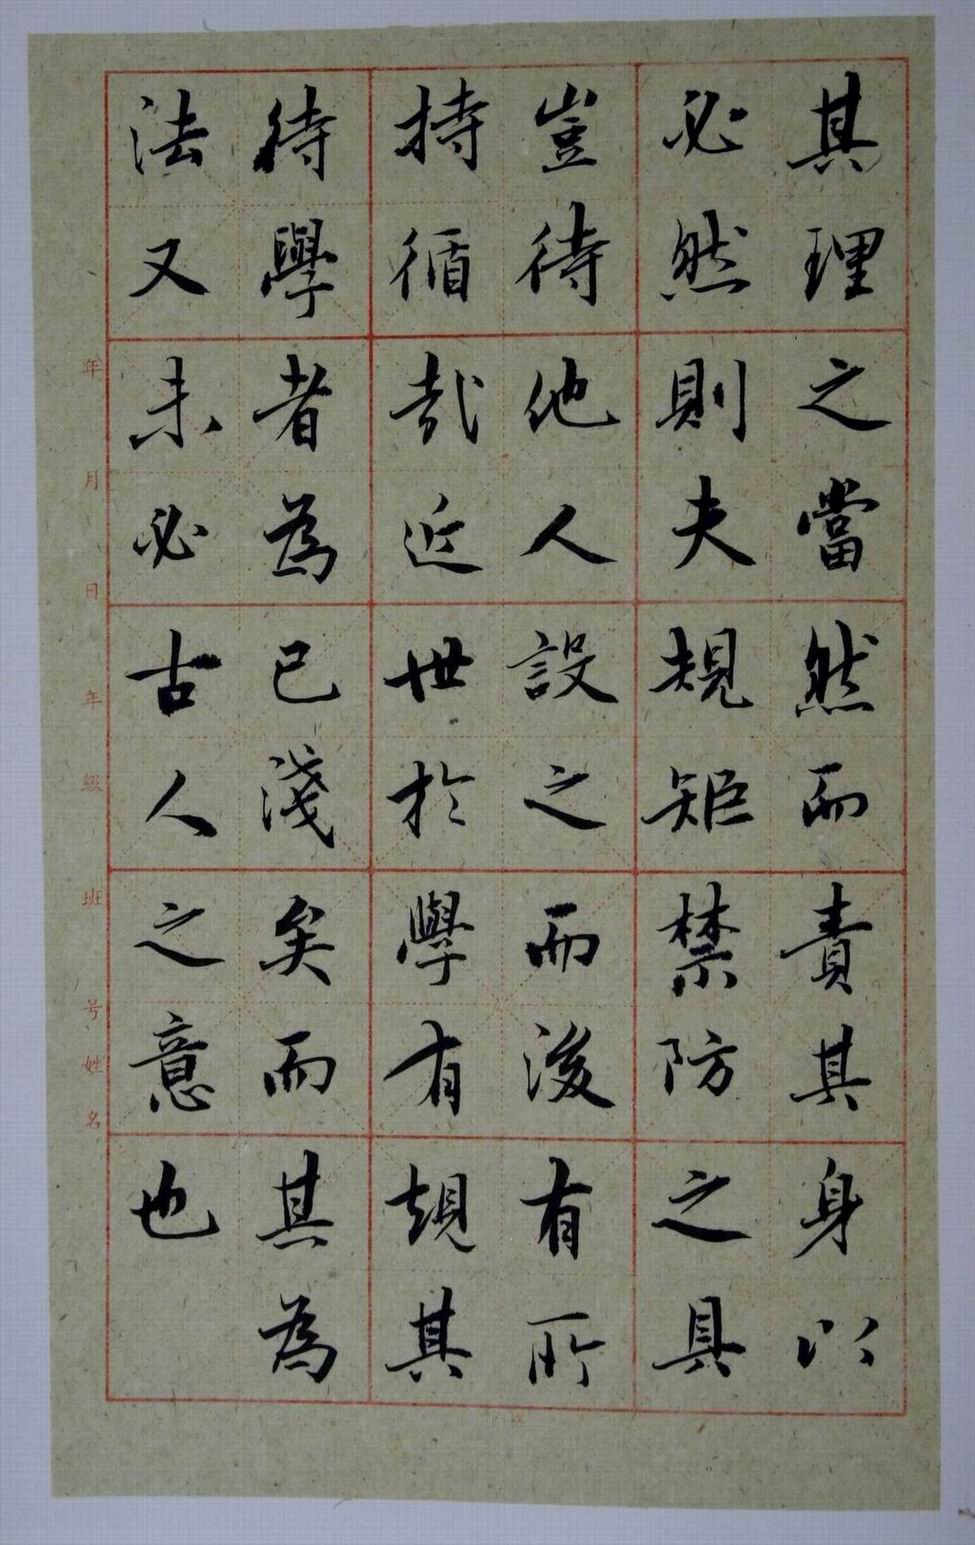 其理之當然而責其身以
必然則夫規矩禁防之具
豈待他人設之而後有所
持循哉近世於學有規其
待學者為已淺矣而其為
法又未必古人之意也
年 月 日 年 級 班 号 姓 名